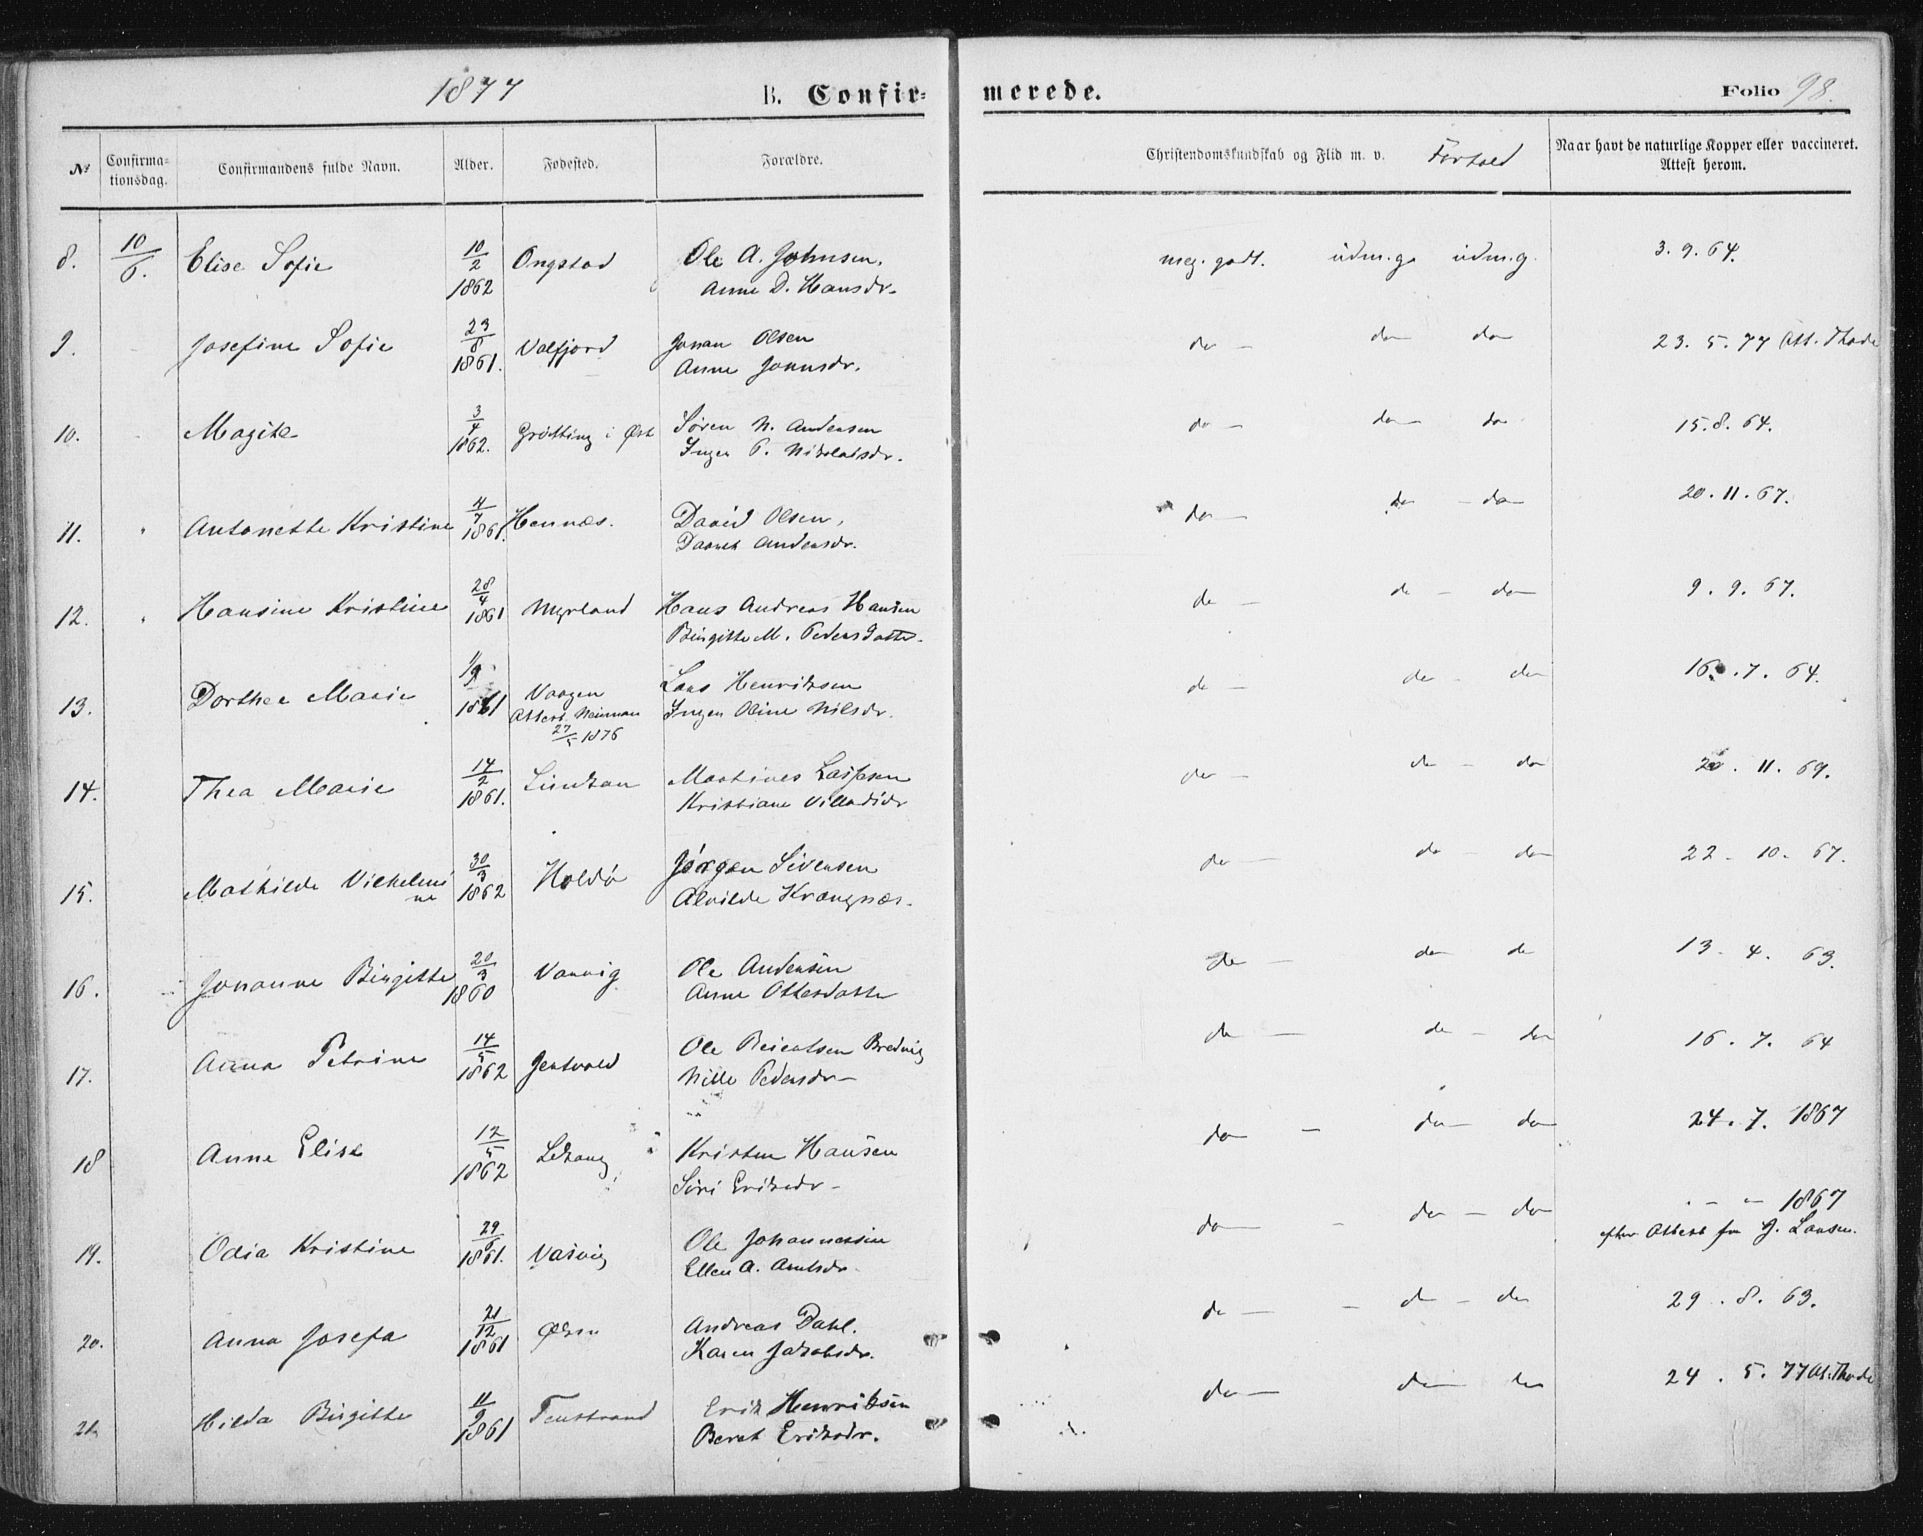 1877 B. Confir= merede. Folio 98.
No Confirma= tionsdag. Confirmandens fulde Navn. Alder. Fødested. Forældre. Christendomskundskab og Flid m. v. Forhold Naar havt de naturlige Kopper eller vaccineret. Attest herom.
8. 10/6. Elise Sofie 10/2 1862 Ongstad Ole A. Johnsen. Anne D. Hansdr. meg. godt. udm.g. udm.g. 3. 9. 64.
9. Josefine Sofie 23/8 1861. Valfjord Johan Olsen Anne Johnsdr. do – do do 23. 5. 77 Att. Thode
10. Magite 3/4 1862. Grötting i Øst Sören N. Andersen Inger P. Nikolaisdr. do – do – do 15. 8. 64.
11. " Antonette Kristine 4/7 1861. Hennæs. David Olsen, Andersdr. do – do – do 20. 11. 67.
12. " Hansine Kristine 28/4 1861 Myrland Hans Andreas Hansen Birgitte M. Pedersdatter. do – do – do 9. 9. 67.
13. Dorthea Marie 1/9 1861 Vaagen Attest 27/5 1876 Lars Henriksen Inger Oline Nilsdr. do – do – do 16. 7. 64.
14. Thea Marie 14/2 1861. Martines Kristiane do – do – do 20. 11. 69.
15. Mathilde Vilhelmi ne 30/3 1862 Holdö Jörgen Sivensen Alvilde Krængnæs. do – do – do 22. 10. 67.
16. Johanne Birgitte 20/3 1860 Ole Andersen Anne Ottesdatter do – do – do 13. 4. 63.
17. Anna Petrine 14/5 1862 Jentvold Ole Bredvig Nille Pedersdr – do – do – do 16. 7. 64
18 Anne Elise 12/5 1862 Kristen Hansen Siri Eriksdr – do – do – do 24. 7. 1867
19. Odia Kristine 29/6 1861. Vasvig Ole Johannessen Ellen A. Arntsdr. do – do – do " – " – 1867
efter Attest fra J. Larsen.
20. Anna Josefa 21/12 1861 Andreas Dahl. Karen Jakobsdr. do – do – do 29. 8. 63.
21. Hilda Birgitte 11/9 1861 Tenstrand Erik Henriksen Beret Eriksdr. do – do do 24. 5. 77 At. Thode